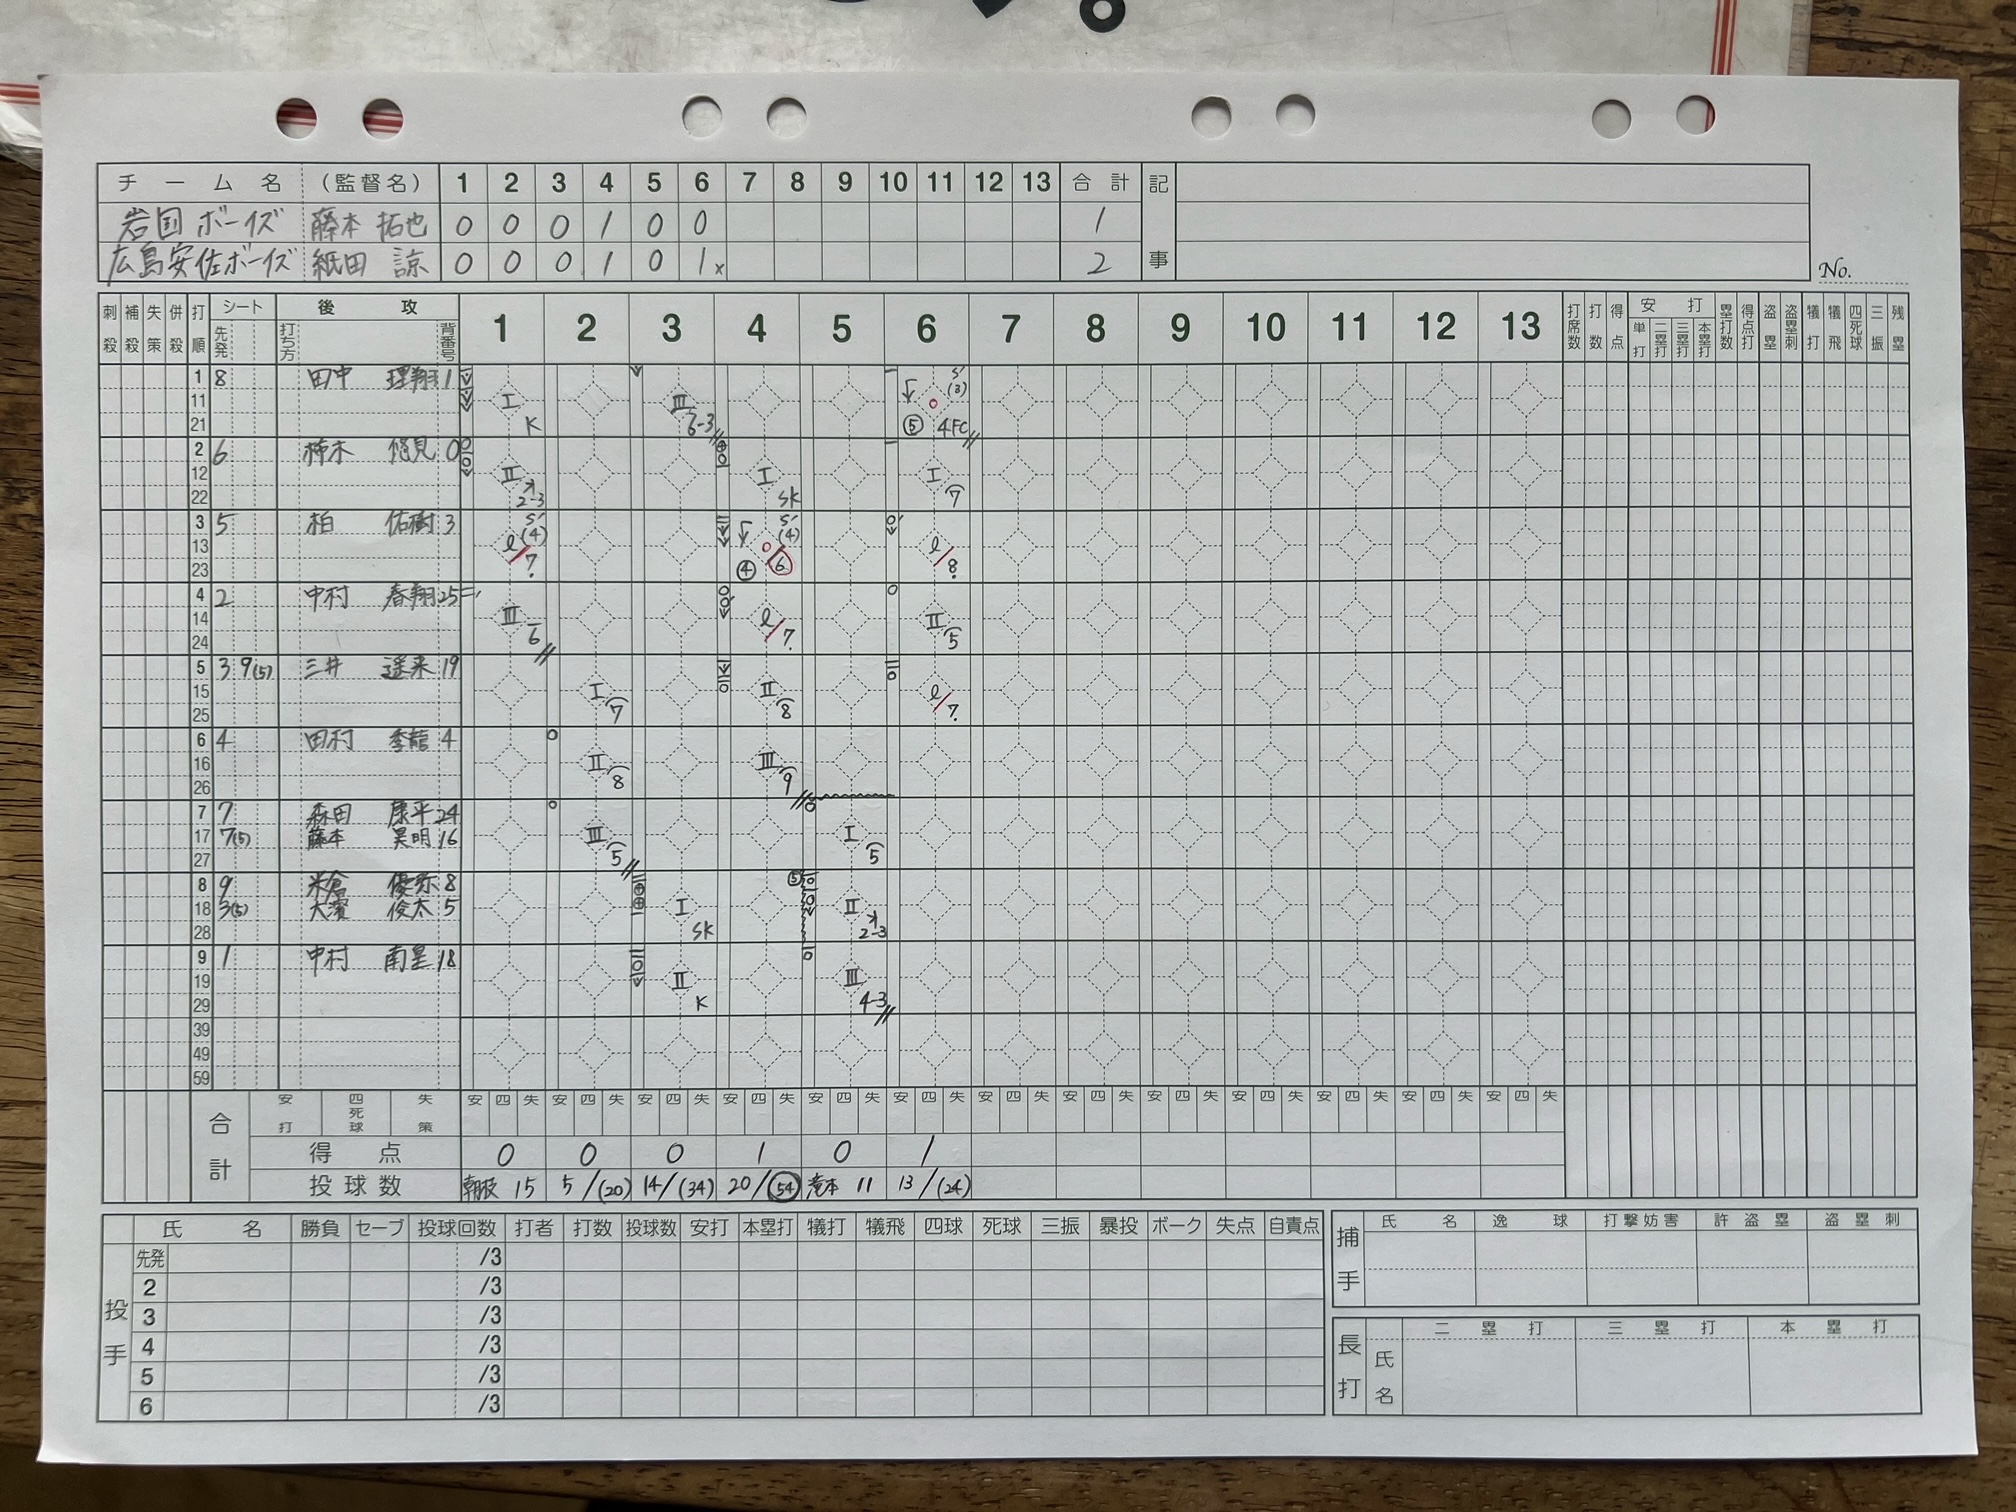 チーム名 (監督名) 1 2 3 4 5 6 7 8 9 10 11 12 13 合計 記事
岩国ボーイズ 藤本 拓也 0 0 0 1 0 0 1
広島安佐ボーイズ 紙田 諒 0 0 0 1 0 1x 2
No.
刺殺 補殺 失策 併殺 打順 シート 先発 後攻 打ち方 背番号 1 2 3 4 5 6 7 8 9 10 11 12 13 打席数 打数 得点 安打 単打 二塁打 三塁打 本塁打 塁打数 得点打 盗塁 盗塁刺 犠打 犠飛 四死球 三振 残塁
1 8 田中 理翔 1 I K III 6-3 (3) ⑤ 4FC
11
21
2 6 柿木 悠見 0 II 2-3 I SK I 7
12
22
3 5 柏 佑樹 3 (4) 7 (4) ④ 6 8
13
23
4 2 中村 春翔 25 III 6 7 II 5
14
24
5 3 9(5) 三井 遥来 19 I 7 II 8 7
15
25
6 4 田村 季龍 4 II 8 III 9
16
26
7 7 森田 康平 24 III 5 I 5
17 7(5) 藤本 昊明 16
27
8 9 米倉 優弥 8 I SK ⑤ II 2-3
18 3(5) 大濱 俊太 5
28
9 1 中村 南星 18 II K III 4-3
19
29
39
49
59
合計 安打 四死球 失策 安 四 失 安 四 失 安 四 失 安 四 失 安 四 失 安 四 失 安 四 失 安 四 失 安 四 失 安 四 失 安 四 失 安 四 失 安 四 失
得点 0 0 0 1 0 1
投球数 15 5/(20) 14/(34) 20/(54) 11 13/(24)
投手 氏名 勝負 セーブ 投球回数 打者 打数 投球数 安打 本塁打 犠打 犠飛 四球 死球 三振 暴投 ボーク 失点 自責点
先発 /3
2 /3
3 /3
4 /3
5 /3
6 /3
捕手 氏名 逸球 打撃妨害 許盗塁 盗塁刺
長打 氏名 二塁打 三塁打 本塁打